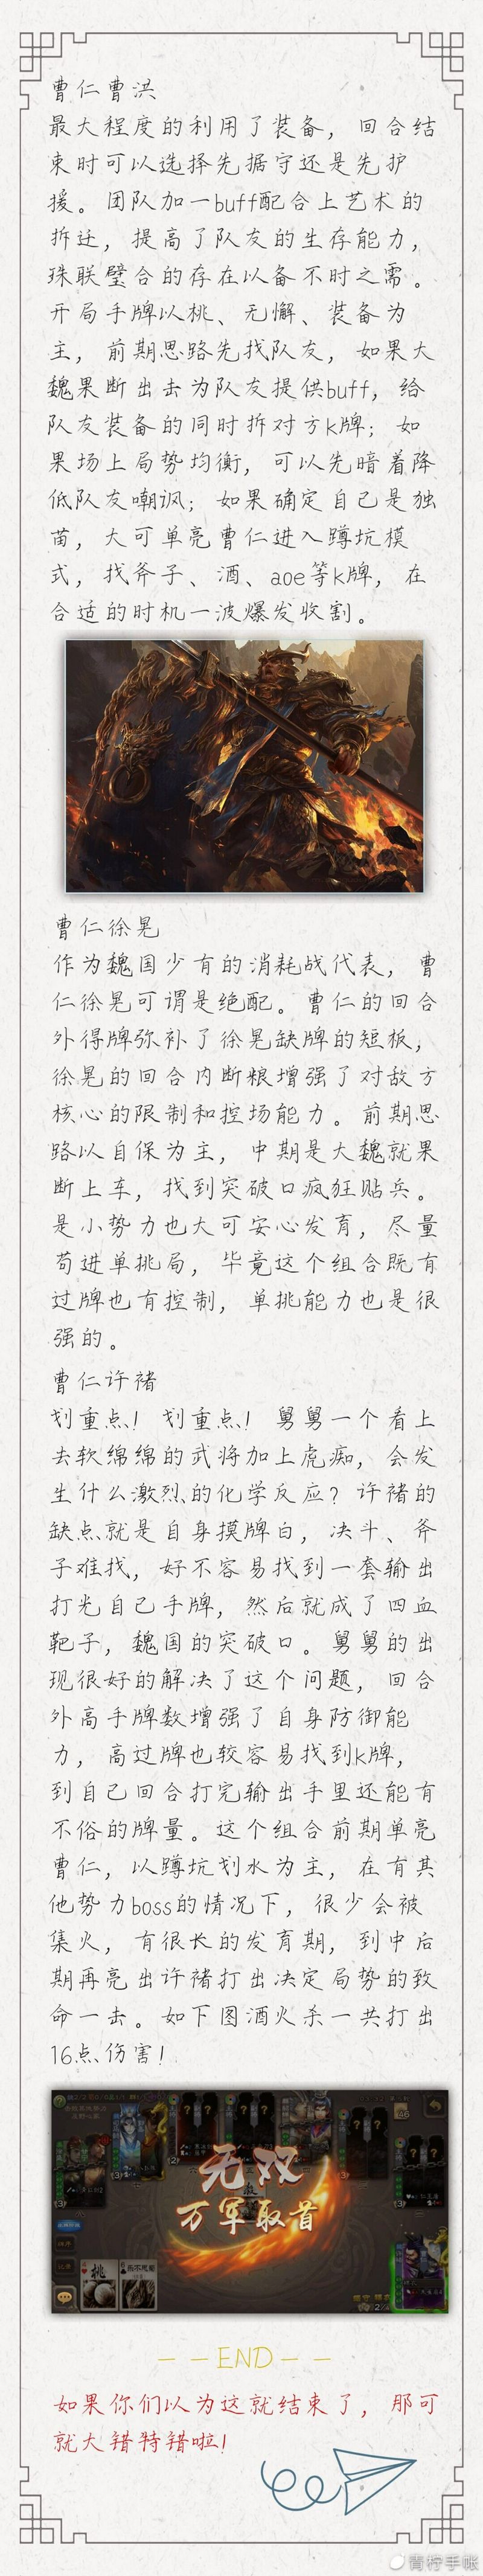 曹仁曹洪
最大程度的利用了装备，回合结
束时可以选择先据守还是先护
援。团队加一buff配合上艺术的
拆迁，提高了队友的生存能力，
珠联璧合的存在以备不时之需。
开局手牌以桃、无懈、装备为
主，前期思路先找队友，如果大
魏果断出击为队友提供buff，给
队友装备的同时拆对方k牌；如
果场上局势均衡，可以先暗着降
低队友嘲讽；如果确定自己是独
苗，大可单亮曹仁进入蹲坑模
式，找斧子、酒、aoe等k牌，在
合适的时机一波爆发收割。
曹仁徐晃
作为魏国少有的消耗战代表，曹
仁徐晃可谓是绝配。曹仁的回合
外得牌弥补了徐晃缺牌的短板，
徐晃的回合内断粮增强了对敌方
核心的限制和控场能力。前期思
路以自保为主，中期是大魏就果
断上车，找到突破口疯狂贴兵。
是小势力也大可安心发育，尽量
苟进单挑局，毕竟这个组合既有
过牌也有控制，单挑能力也是很
强的。
曹仁许褚
划重点！划重点！舅舅一个看上
去软绵绵的武将加上虎痴，会发
生什么激烈的化学反应？许褚的
缺点就是自身摸牌白，决斗、斧
子难找，好不容易找到一套输出
打光自己手牌，然后就成了四血
靶子，魏国的突破口。舅舅的出
现很好的解决了这个问题，回合
外高手牌数增强了自身防御能
力，高过牌也较容易找到k牌，
到自己回合打完输出手里还能有
不俗的牌量。这个组合前期单亮
曹仁，以蹲坑划水为主，在有其
他势力boss的情况下，很少会被
集火，有很长的发育期，到中后
期再亮出许褚打出决定局势的致
命一击。如下图酒火杀一共打出
16点伤害！
无双
万军取首
桃
--END--
如果你们以为这就结束了，那可
就大错特错啦！
青柠手帐